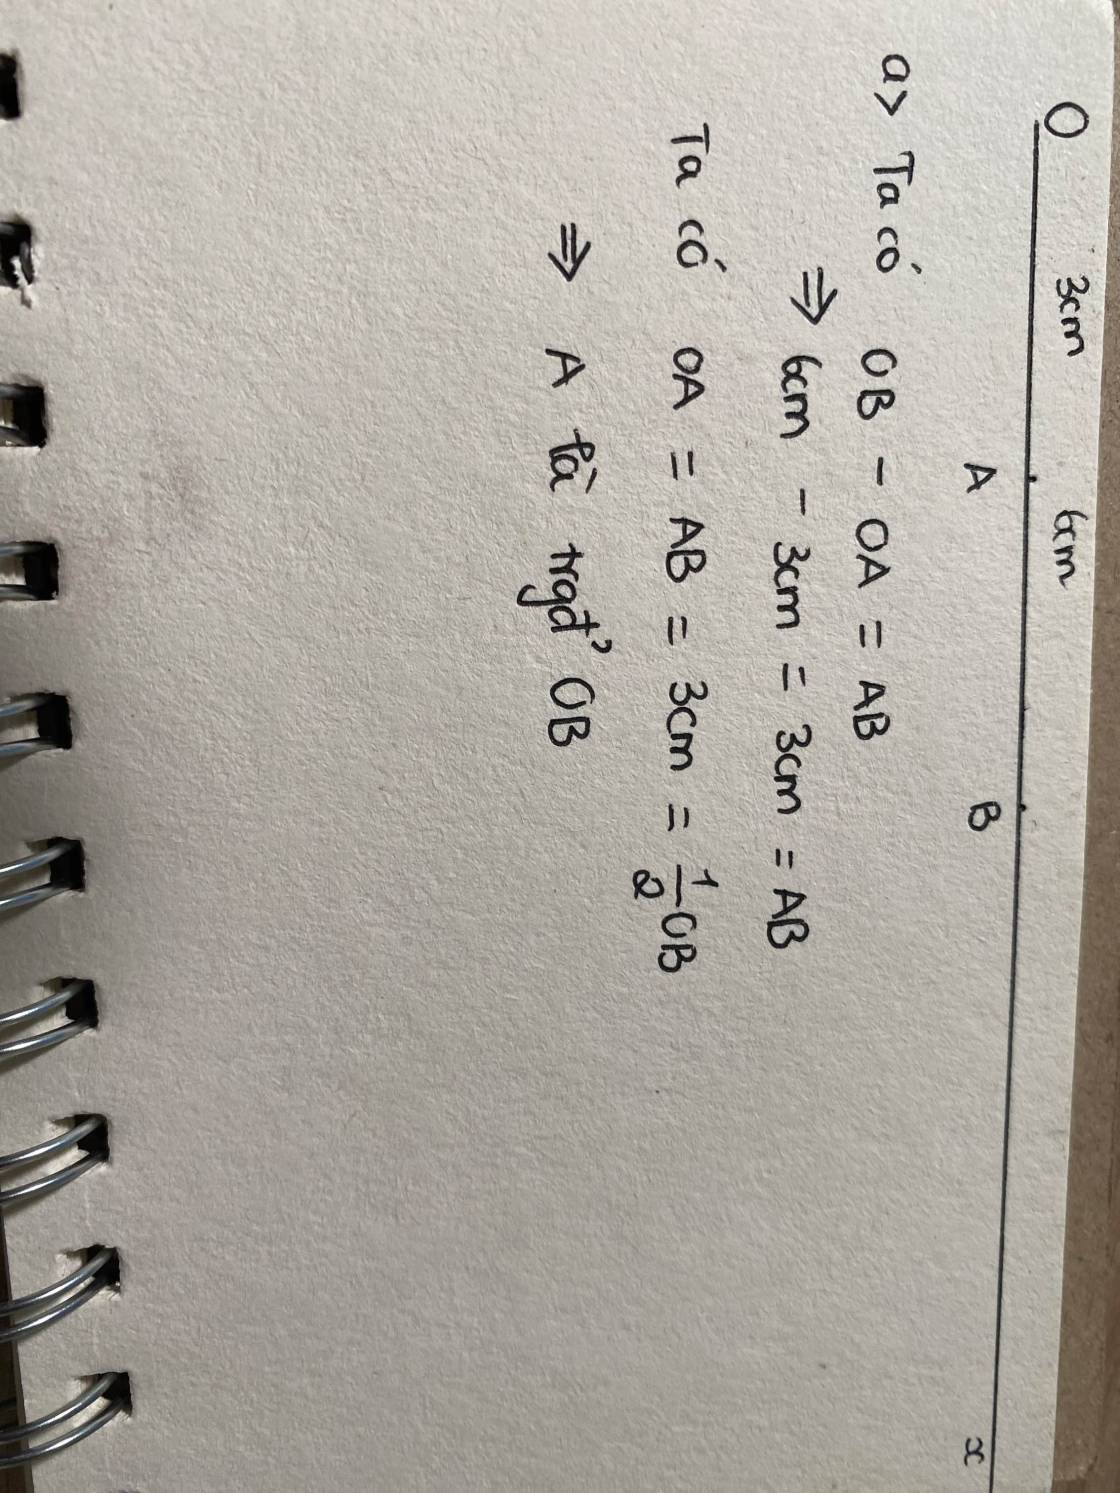 O 3cm 6cm
A B x
a> Ta có OB - OA = AB
⇒ 6cm - 3cm = 3cm = AB
Ta có OA = AB = 3cm = 1/2 OB
⇒ A là trgđ' OB